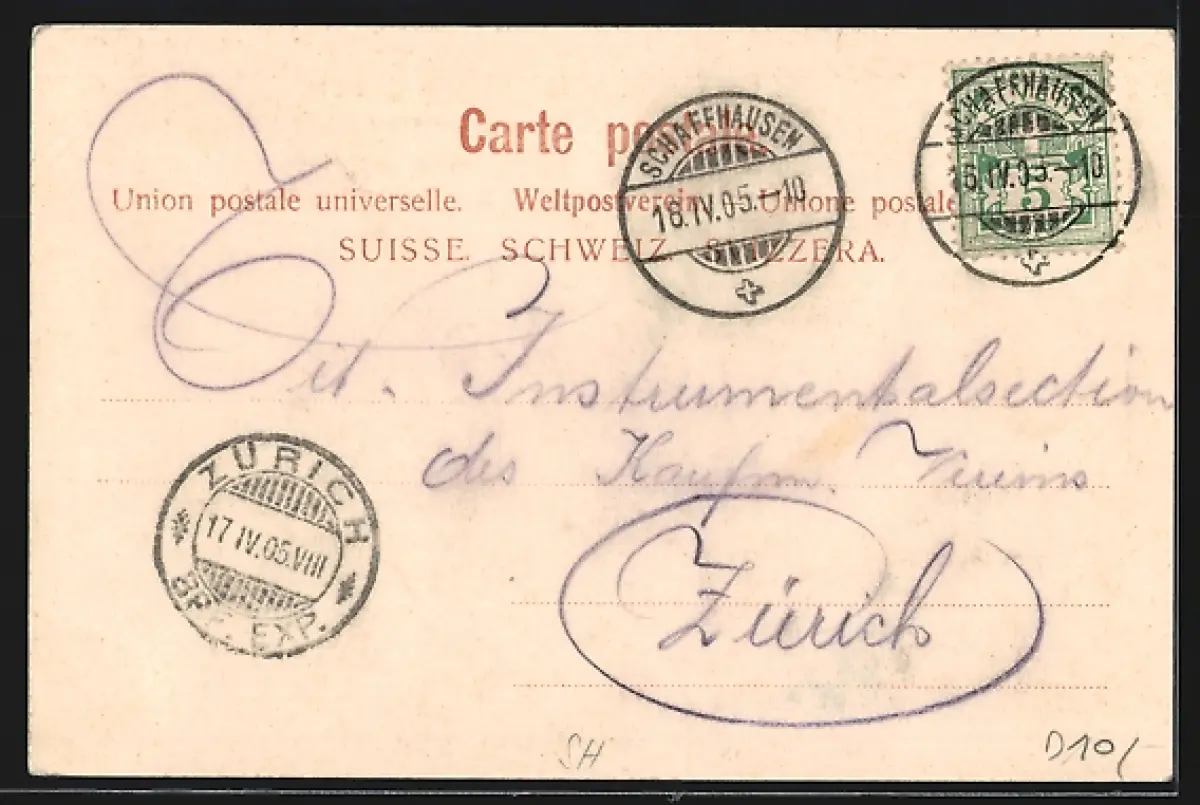 Carte postale.
Union postale universelle. Weltpostverein. Unione postale
SUISSE. SCHWEIZ. SVIZZERA.
SCHAFFHAUSEN
16.IV.05.-10
SCHAFFHAUSEN
16.IV.05.-10
5
Tit. Instrumentalsection
des Kaufm. Vereins
Zürich
ZÜRICH
17.IV.05.VIII
EXP.
SH
D10/-